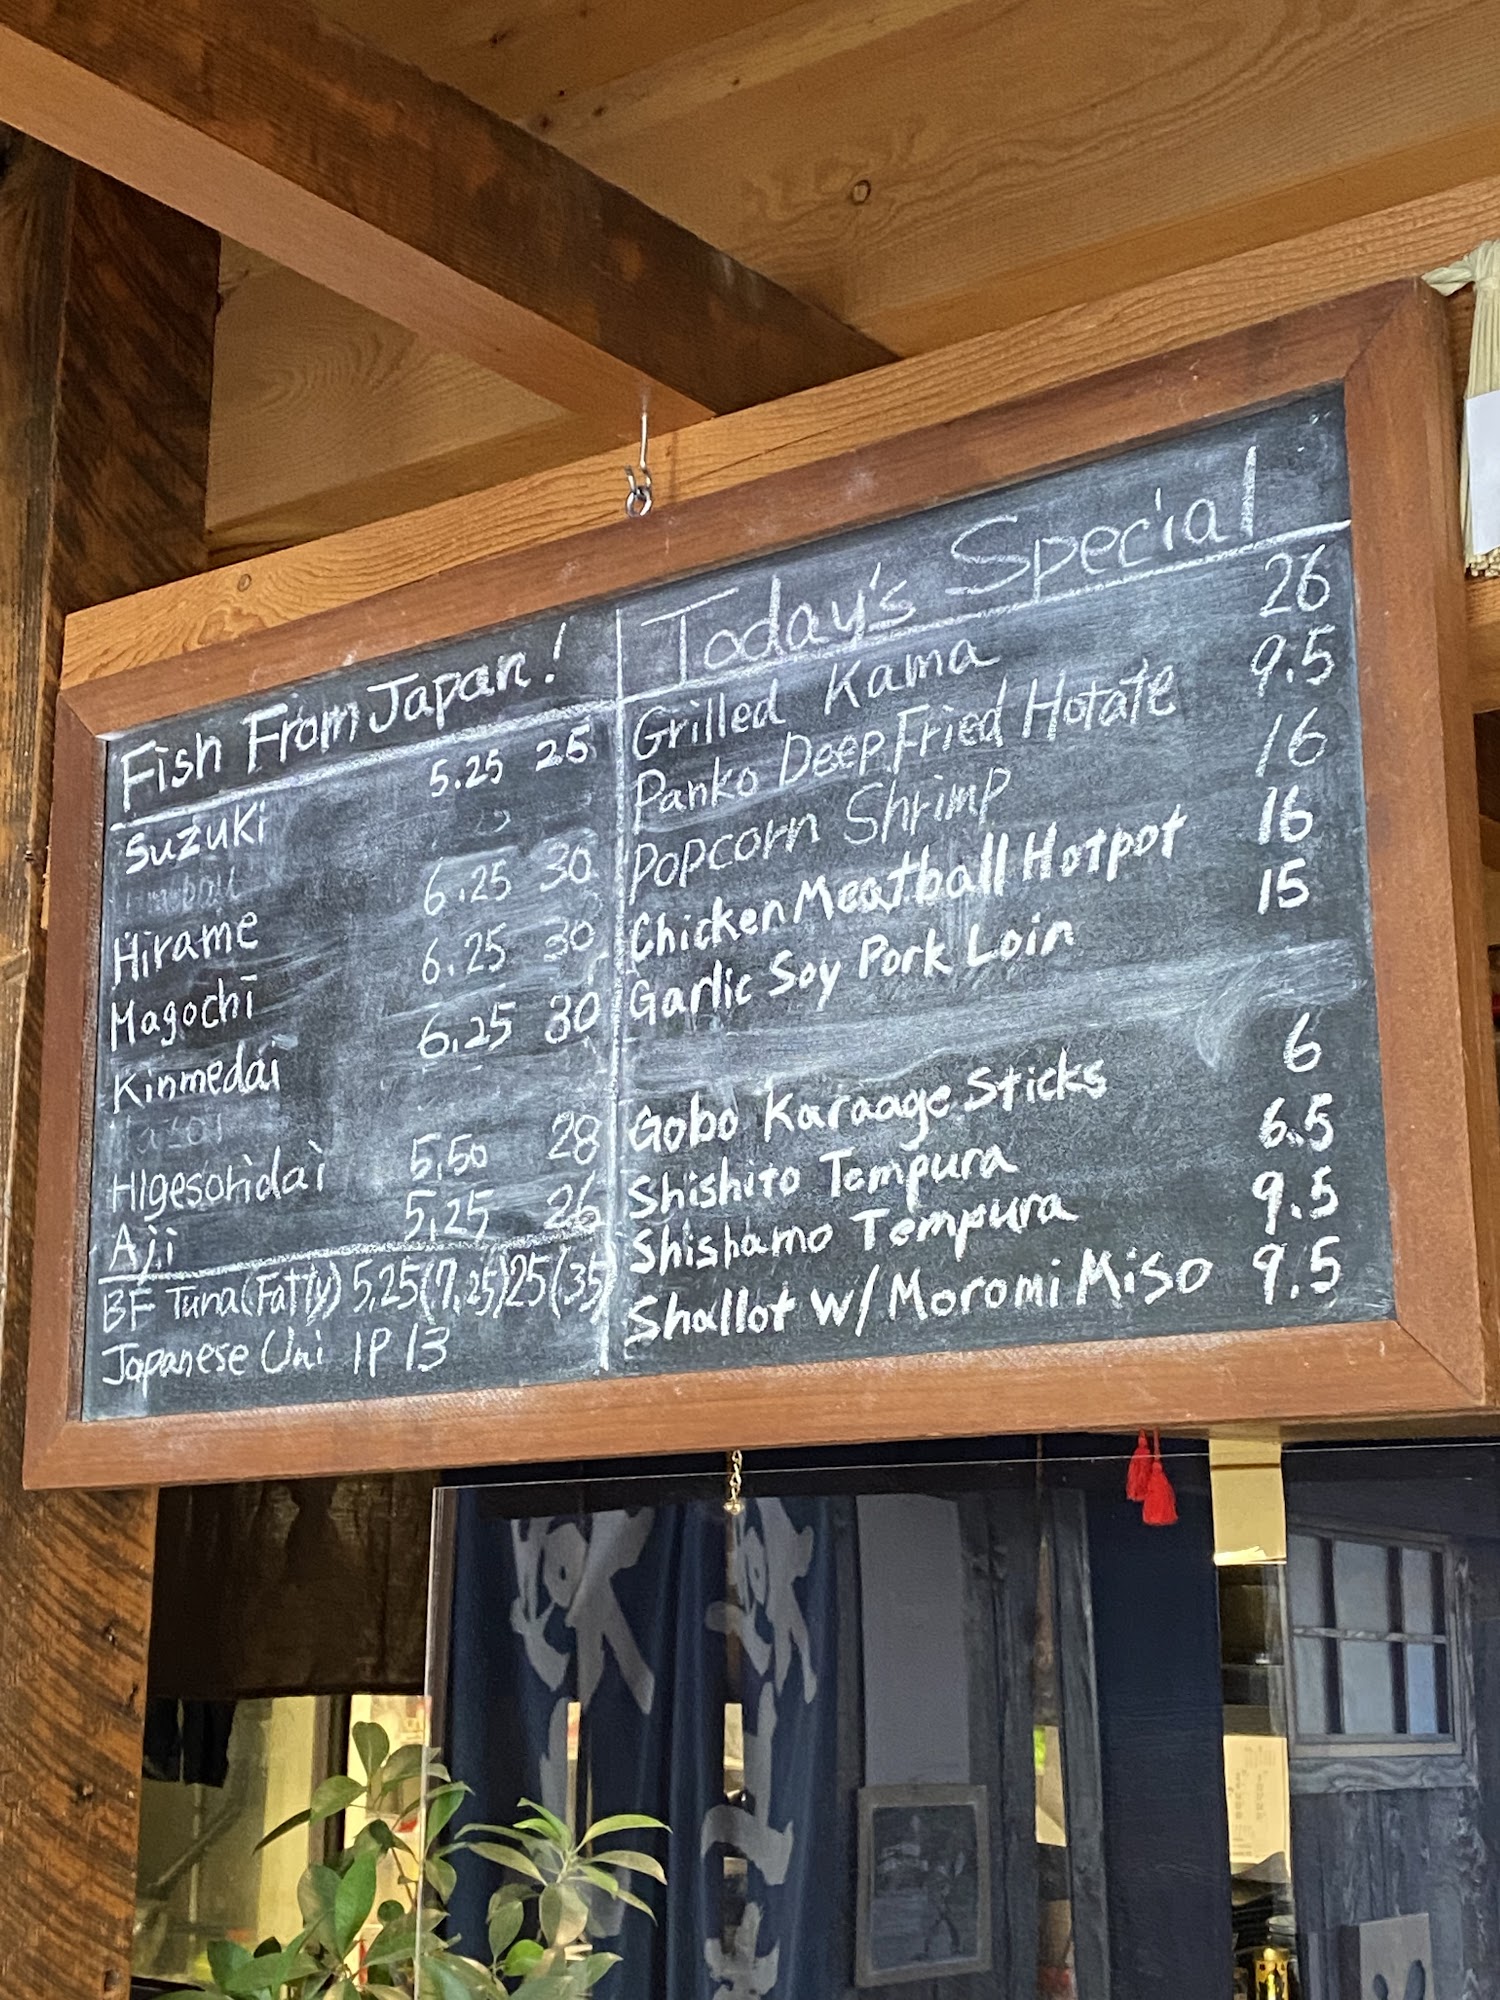 Fish From Japan!
Suzuki 5.25 25
Hirame 6.25 30
Magochi 6.25 30
Kinmedai 6.25 30
Higesoridai 5.50 28
Aji 5.25 26
BF Tuna (Fatty) 5.25 (7.25) 25 (35)
Japanese Uni 1P 13
Today's Special
Grilled Kama 26
Panko Deep Fried Hotate 9.5
Popcorn Shrimp 16
Chicken Meatball Hotpot 16
Garlic Soy Pork Loin 15
Gobo Karaage Sticks 6
Shishito Tempura 6.5
Shishamo Tempura 9.5
Shallot w/ Moromi Miso 9.5